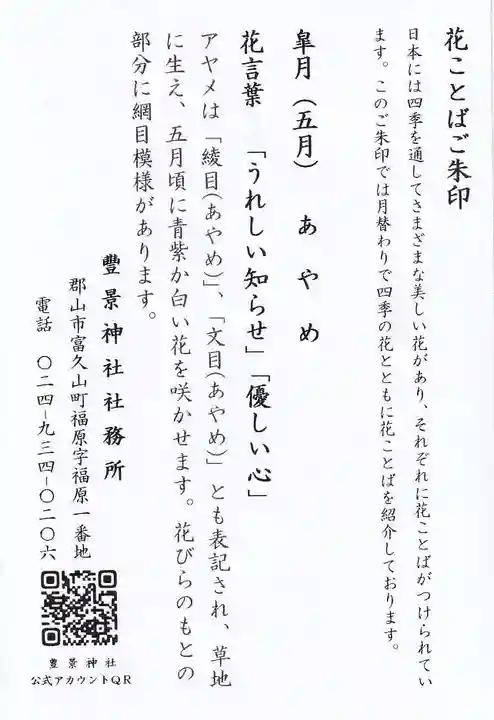 花ことばご朱印
日本には四季を通してさまざまな美しい花があり、それぞれに花ことばがつけられてい
ます。このご朱印では月替わりで四季の花とともに花ことばを紹介しております。
皐月（五月）　あやめ
花言葉　「うれしい知らせ」「優しい心」
アヤメは「綾目(あやめ)」、「文目(あやめ)」とも表記され、草地
に生え、五月頃に青紫か白い花を咲かせます。花びらのもとの
部分に網目模様があります。
豐景神社社務所
郡山市富久山町福原字福原一番地
電話　〇二四－九三四－〇二〇六
豐景神社
公式アカウントQR